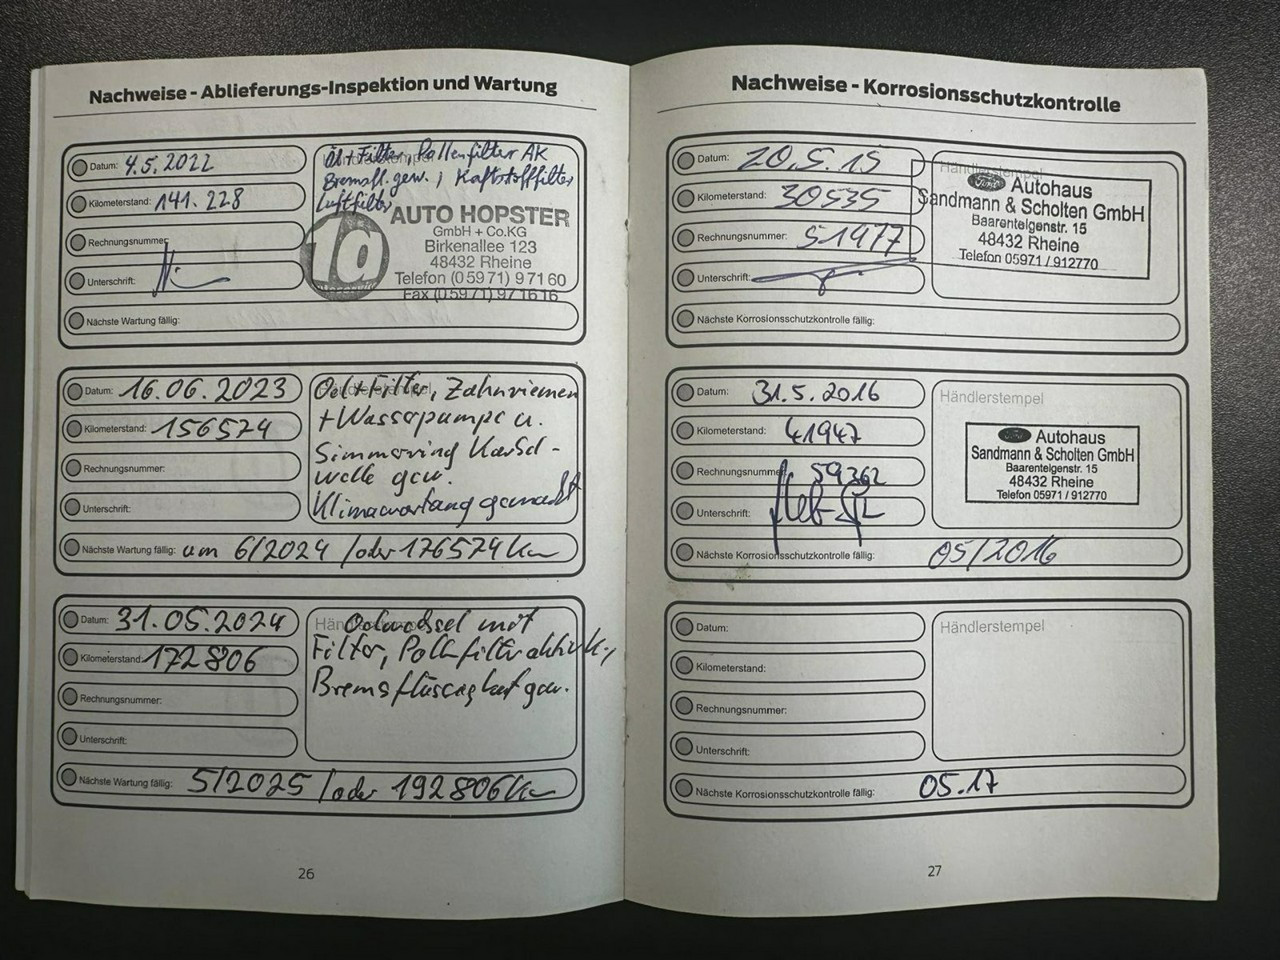 Nachweise - Ablieferungs-Inspektion und Wartung
Datum: 4.5.2022
Kilometerstand: 141.228
Rechnungsnummer:
Unterschrift:
Händlerstempel
Öl + Filter, Pollenfilter AK
Bremsfl. gew., Kaftstofffilter
Luftfilter
1a
AUTO HOPSTER
GmbH + Co.KG
Birkenallee 123
48432 Rheine
Telefon (05971) 97160
Fax (05971) 971616
Nächste Wartung fällig:
Datum: 16.06.2023
Kilometerstand: 156574
Rechnungsnummer:
Unterschrift:
Händlerstempel
Oel + Filter, Zahnriemen
+ Wasserpumpe u.
Simmering
welle gew.
Klimawartung gemacht
Nächste Wartung fällig: um 6/2024 /oder 176574 Km
Datum: 31.05.2024
Kilometerstand: 172806
Rechnungsnummer:
Unterschrift:
Händlerstempel
Oelwechsel mit
Filter, Pollenfilter aktivk.,
Bremsflüssigkeit gew.
Nächste Wartung fällig: 5/2025 /oder 192806 Km
26
Nachweise - Korrosionsschutzkontrolle
Datum: 20.5.15
Kilometerstand: 30535
Rechnungsnummer: 51977
Unterschrift:
Händlerstempel
Ford Autohaus
Sandmann & Scholten GmbH
Baarentelgenstr. 15
48432 Rheine
Telefon 05971 / 912770
Nächste Korrosionsschutzkontrolle fällig:
Datum: 31.5.2016
Kilometerstand: 41947
Rechnungsnummer: 59362
Unterschrift:
Händlerstempel
Ford Autohaus
Sandmann & Scholten GmbH
Baarentelgenstr. 15
48432 Rheine
Telefon 05971 / 912770
Nächste Korrosionsschutzkontrolle fällig: 05/2016
Datum:
Kilometerstand:
Rechnungsnummer:
Unterschrift:
Händlerstempel
Nächste Korrosionsschutzkontrolle fällig: 05.17
27